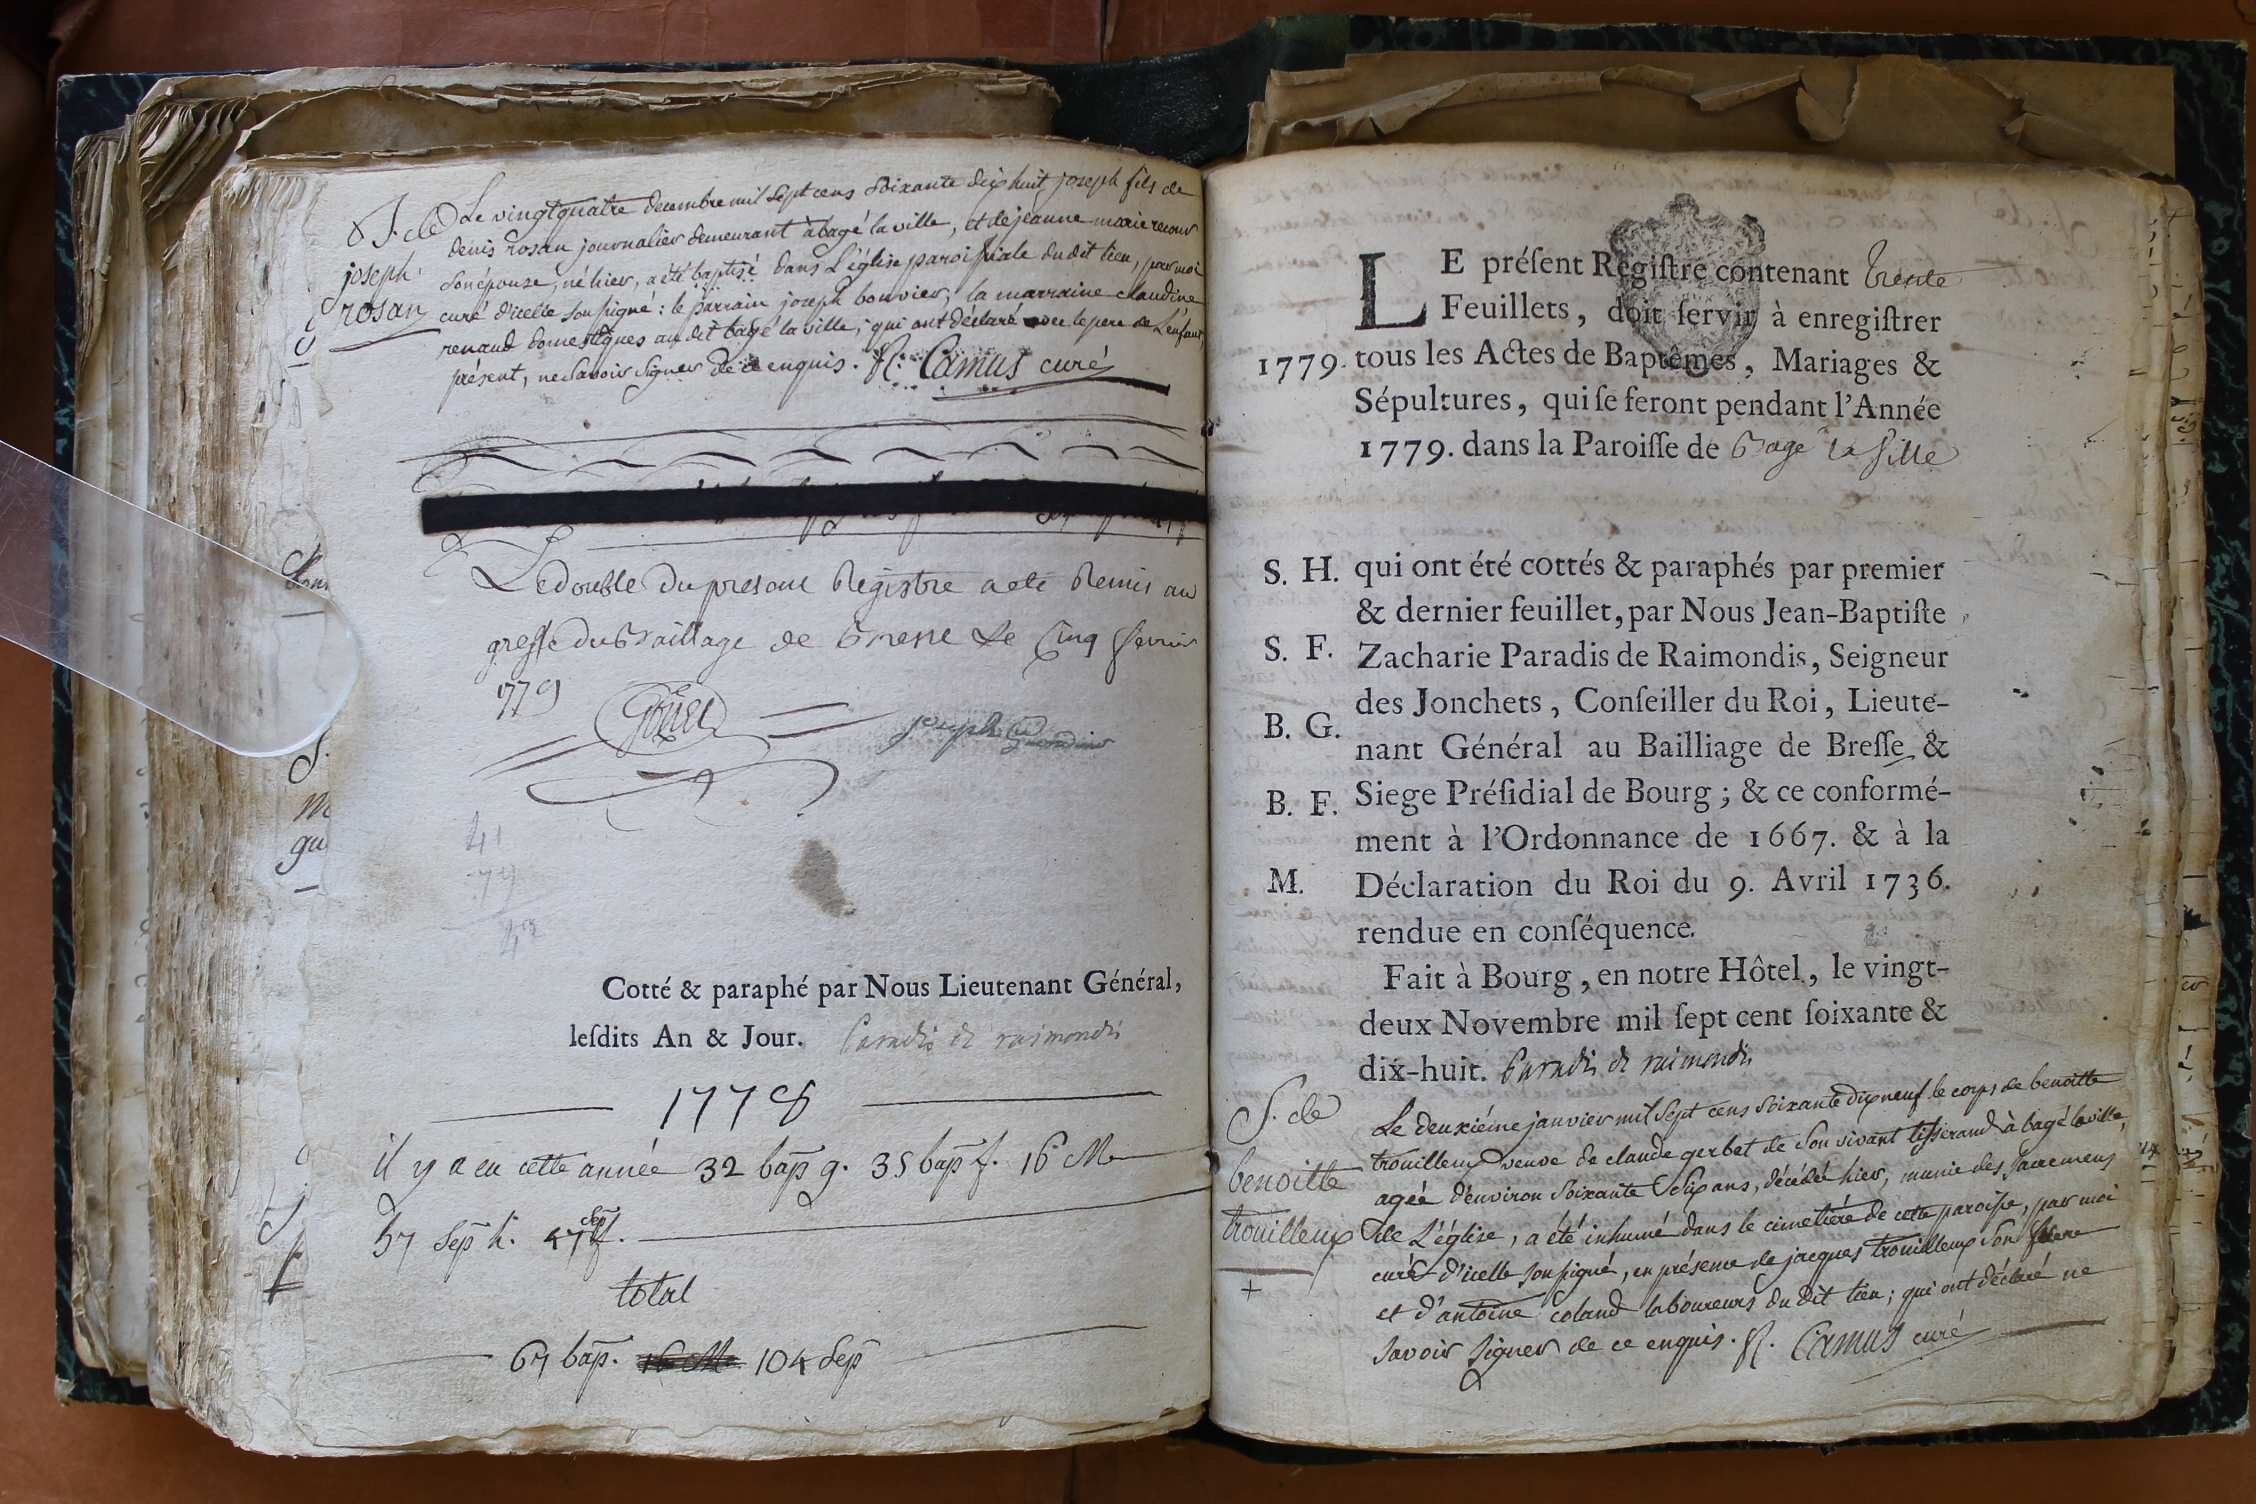 Le vingtquatre decembre mil sept cens soixante dix huit joseph fils de
denis rosan journalier demeurant à bagé la ville, et de jeanne marie renoux
joseph
son épouse, né hier, a été baptisé dans L'église paroissiale du dit lieu, par moi
rosan
curé d'icelle soussigné : le parrain joseph bouvier, la marraine claudine
renaud domestiques au dit bagé la ville ; qui ont déclaré avec le pere de L'enfant
présent, ne savoir signer de ce enquis. Camus curé
Le double du present Registre a ete Remis au
greffe du Bailliage de Bresse Le Cinq fevrier
1779
joseph
Cotté & paraphé par Nous Lieutenant Général,
leſdits An & Jour. Paradis de raimondis
1778
il y a eu cette année 32 bap g. 35 bap f. 16 M
57 sep h. 47 sep f.
total
67 bap. 16 M 104 sep
LE préſent Régiſtre contenant trente
Feuillets, doit ſervir à enregiſtrer
1779. tous les Actes de Baptêmes, Mariages &
Sépultures, qui ſe feront pendant l'Année
1779. dans la Paroiſſe de Bagé la Ville
S. H. qui ont été cottés & paraphés par premier
& dernier feuillet, par Nous Jean-Baptiſte
S. F. Zacharie Paradis de Raimondis, Seigneur
des Jonchets, Conſeiller du Roi, Lieute-
B. G. nant Général au Bailliage de Breſſe &
B. F. Siege Préſidial de Bourg ; & ce conformé-
ment à l'Ordonnance de 1667. & à la
M. Déclaration du Roi du 9. Avril 1736.
rendue en conſéquence.
Fait à Bourg, en notre Hôtel, le vingt-
deux Novembre mil ſept cent ſoixante &
dix-huit. Paradis de raimondis
S. de
Le deuxiéme janvier mil sept cens soixante dix neuf le corps de benoitte
trouilleux veuve de claude gerbet de son vivant tisserand à bagé la ville,
benoitte
agée d'environ soixante dix ans, décédée hier, munie des sacremens
trouilleux
de L'église, a été inhumé dans le cimetiére de cette paroisse, par moi
curé d'icelle soussigné, en présence de jacques trouilleux son frere
et d'antoine coland laboureurs du dit lieu ; qui ont déclaré ne
savoir signer de ce enquis. Camus curé